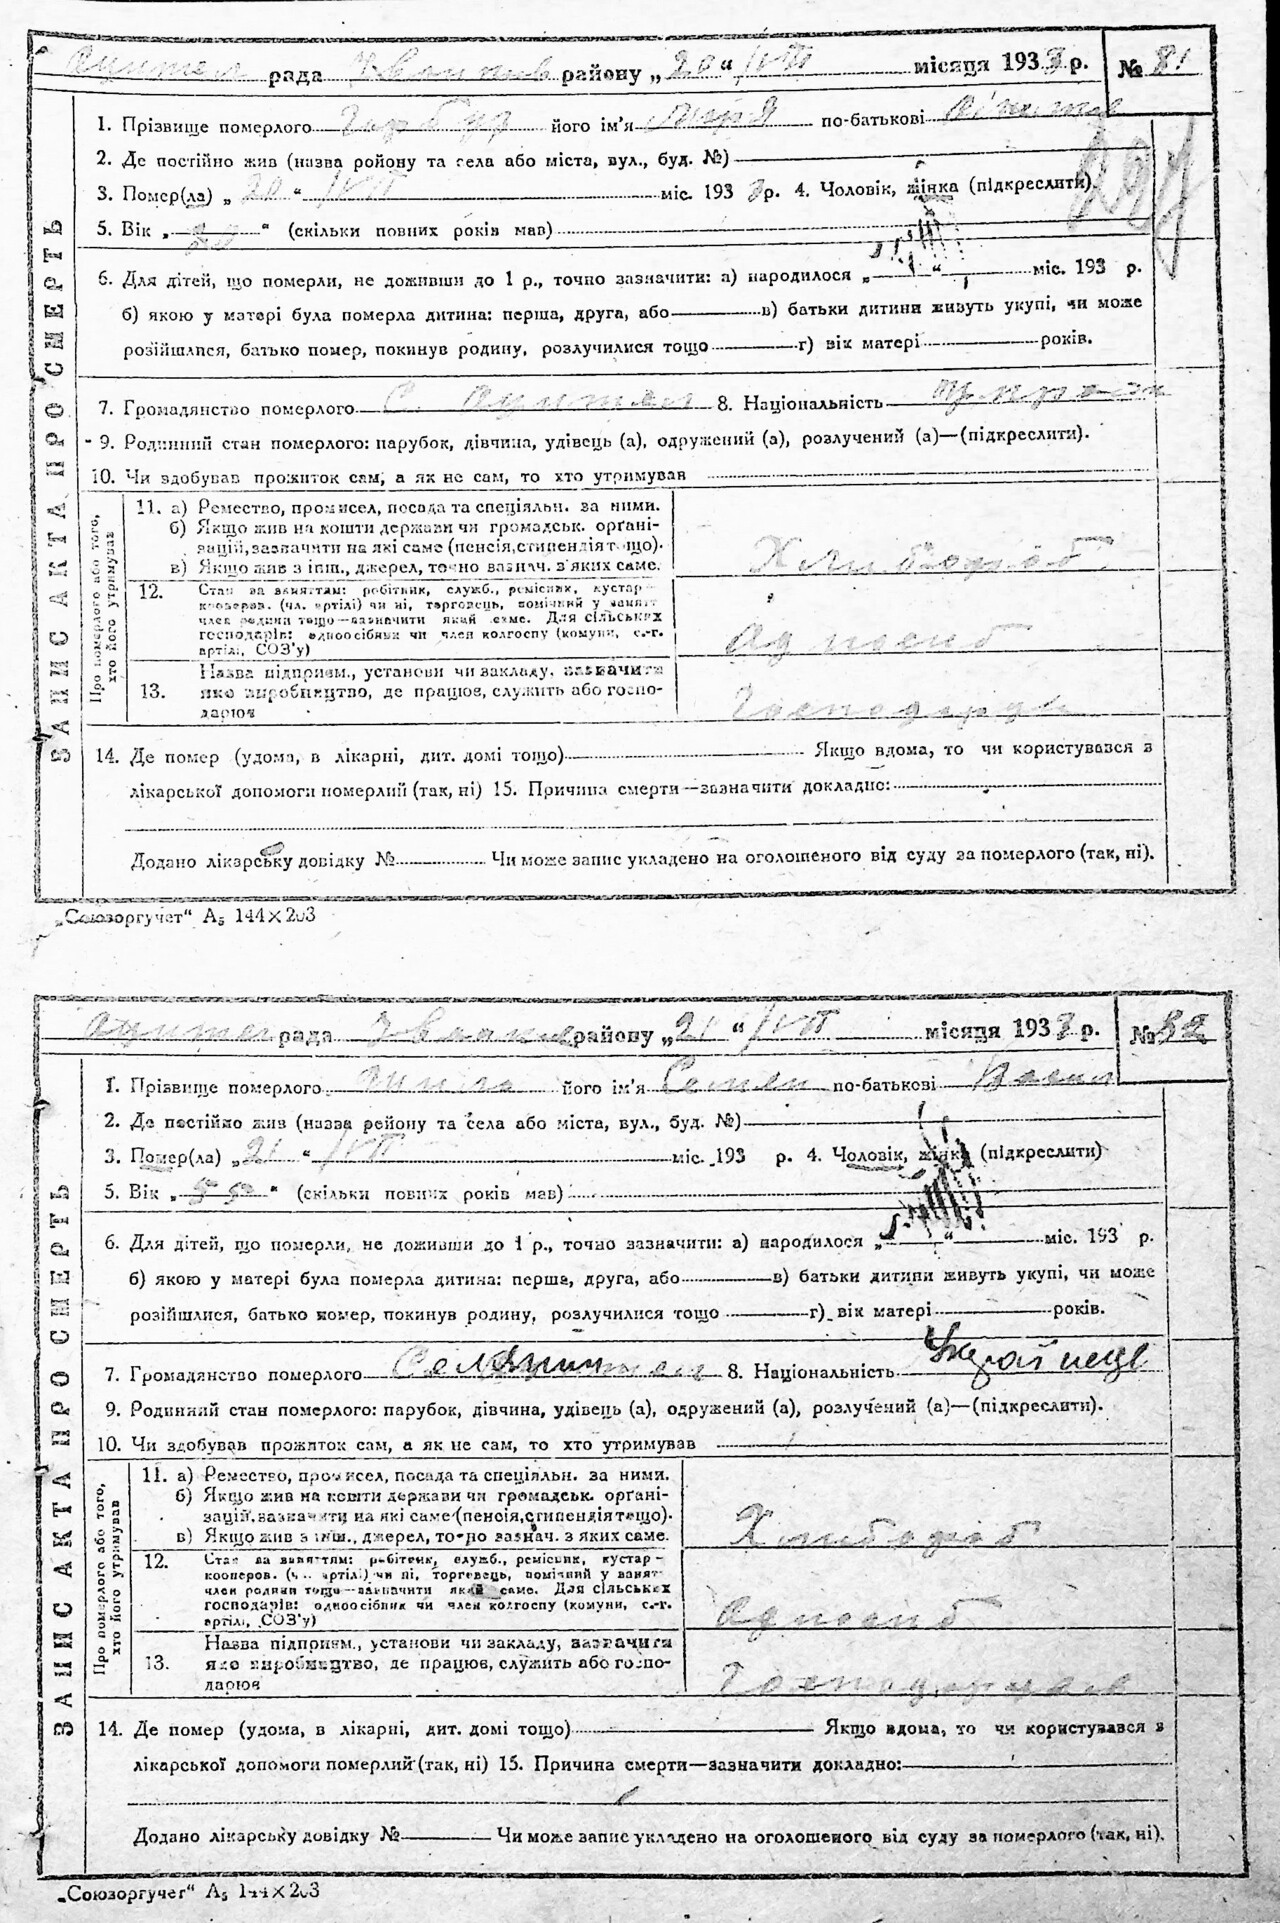 рада району „20“ VII місяця 1933 р. № 81
ЗАПИС АКТА ПРО СМЕРТЬ
1. Прізвище померлого його ім'я по-батькові
2. Де постійно жив (назва ройону та села або міста, вул., буд. №)
3. Помер(ла) „20“ VII міс. 1933 р. 4. Чоловік, жінка (підкреслити).
5. Вік „ “ (скільки повних років мав)
6. Для дітей, що померли, не доживши до 1 р., точно зазначити: а) народилося „ “ міс. 193 р.
б) якою у матері була померла дитина: перша, друга, або в) батьки дитини живуть укупі, чи може
розійшлися, батько помер, покинув родину, розлучилися тощо г) вік матері років.
7. Громадянство померлого С. 8. Національність
9. Родинний стан померлого: парубок, дівчина, удівець (а), одружений (а), розлучений (а)—(підкреслити).
10. Чи здобував прожиток сам, а як не сам, то хто утримував
Про померлого або того,
хто його утримував
11. а) Ремество, промисел, посада та спеціяльн. за ними.
б) Якщо жив на кошти держави чи громадськ. орґані-
зацій, зазначити на які саме (пенсія, стипендія тощо).
в) Якщо жив з інш., джерел, точно зазнач. з яких саме.
Хлибороб
12. Стан за заняттям: робітник, служб., ремісник, кустар-
кооперов. (чл. артілі) чи ні, торговець, помічний у занят.
член родини тощо—зазначити який саме. Для сільських
господарів: одноосібник чи член колгоспу (комуни, с.-г.
артілі, СОЗ'у)
Одноосиб
13. Назва підприєм., установи чи закладу, зазначити
яке виробництво, де працює, служить або госпо-
дарює
14. Де помер (удома, в лікарні, дит. домі тощо) Якщо вдома, то чи користувався з
лікарської допомоги померлий (так, ні) 15. Причина смерти—зазначити докладно:
Додано лікарську довідку № Чи може запис укладено на оголошеного від суду за померлого (так, ні).
„Союзоргучет“ А₅ 144×203
рада району „21“ VII місяця 1933 р. № 82
ЗАПИС АКТА ПРО СМЕРТЬ
1. Прізвище померлого його ім'я Семен по-батькові
2. Де постійно жив (назва району та села або міста, вул., буд. №)
3. Помер(ла) „21“ VII міс. 193 р. 4. Чоловік, жінка (підкреслити)
5. Вік „ “ (скільки повних років мав)
6. Для дітей, що померли, не доживши до 1 р., точно зазначити: а) народилося „ “ міс. 193 р.
б) якою у матері була померла дитина: перша, друга, або в) батьки дитини живуть укупі, чи може
розійшлися, батько помер, покинув родину, розлучилися тощо г) вік матері років.
7. Громадянство померлого 8. Національність Украйнець
9. Родинний стан померлого: парубок, дівчина, удівець (а), одружений (а), розлучений (а)—(підкреслити).
10. Чи здобував прожиток сам, а як не сам, то хто утримував
Про померлого або того,
хто його утримував
11. а) Ремество, промисел, посада та спеціяльн. за ними.
б) Якщо жив на кошти держави чи громадськ. орґані-
зацій, зазначити на які саме (пенсія, стипендія тощо).
в) Якщо жив з інш., джерел, точно зазнач. з яких саме.
Хлибороб
12. Стан за заняттям: робітник, служб., ремісник, кустар-
кооперов. (чл. артілі) чи ні, торговець, помічний у занят.
член родини тощо—зазначити який саме. Для сільських
господарів: одноосібник чи член колгоспу (комуни, с.-г.
артілі, СОЗ'у)
Одноосиб
13. Назва підприєм., установи чи закладу, зазначити
яке виробництво, де працює, служить або госпо-
дарює
14. Де помер (удома, в лікарні, дит. домі тощо) Якщо вдома, то чи користувався з
лікарської допомоги померлий (так, ні) 15. Причина смерти—зазначити докладно:
Додано лікарську довідку № Чи може запис укладено на оголошеного від суду за померлого (так, ні).
„Союзоргучет“ А₅ 144×203